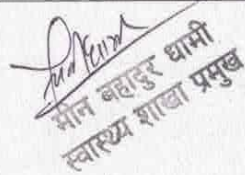 मीन बहादुर धामी
स्वास्थ्य शाखा प्रमुख